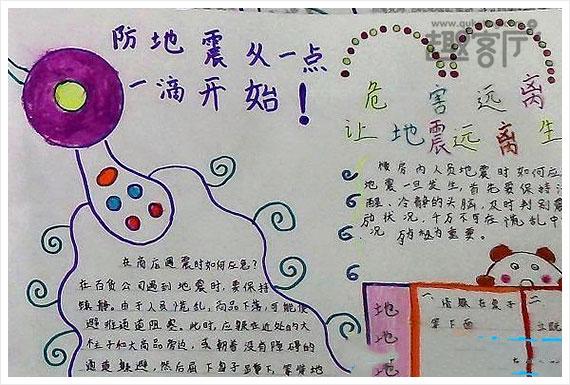 www.quk
趣客厅
防地震从一点
一滴开始!
危害远离
让地震远离生
楼房内人员地震时如何应
地震一旦发生,首先要保持
醒、冷静的头脑,及时判别震
动状况,千万不可在慌乱中
况
为重要。
在商店遇震时如何应急?
在百货公司遇到地震时,要保持
镇静。由于人员慌乱,商品下落,可能使
避难通道阻塞。此时,应躲在近处的大
柱子和大商品旁边,或朝着没有障碍的
通道躲避,然后屈下身子蹲下,等待地
地
地
地
一
在桌子
等下面
二
立